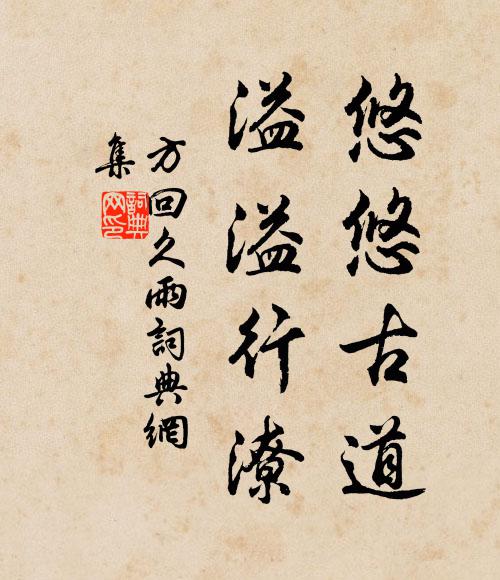 悠悠古道
溢溢行潦
方回久雨詞典網
集
詞典
网印